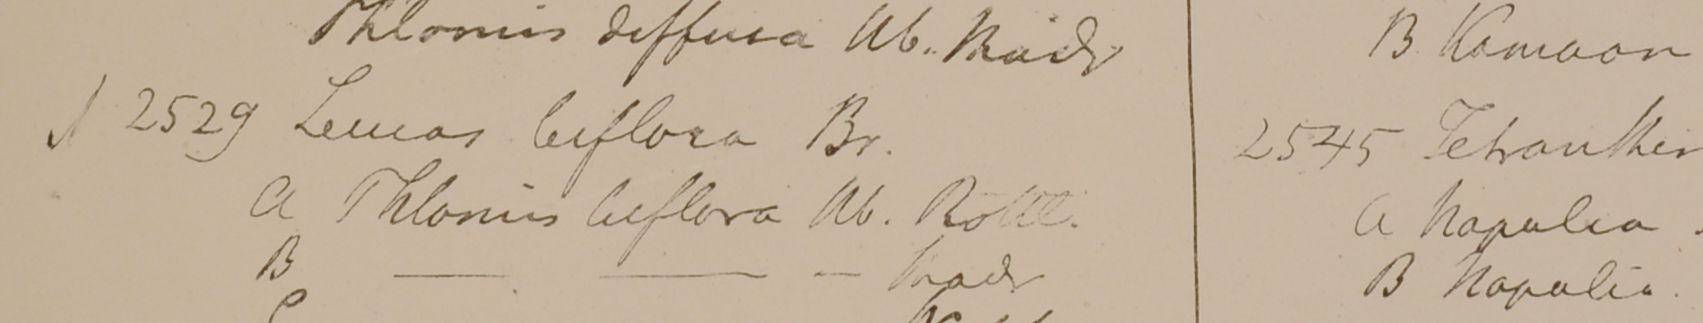 Phlomis diffusa Hb. Madr
2529 Leucas biflora Br.
a Phlomis biflora Hb. Rottl.
B — — — Madr
C
B Kamaon
2545 Tetranther
a Napalia
B Napalia.